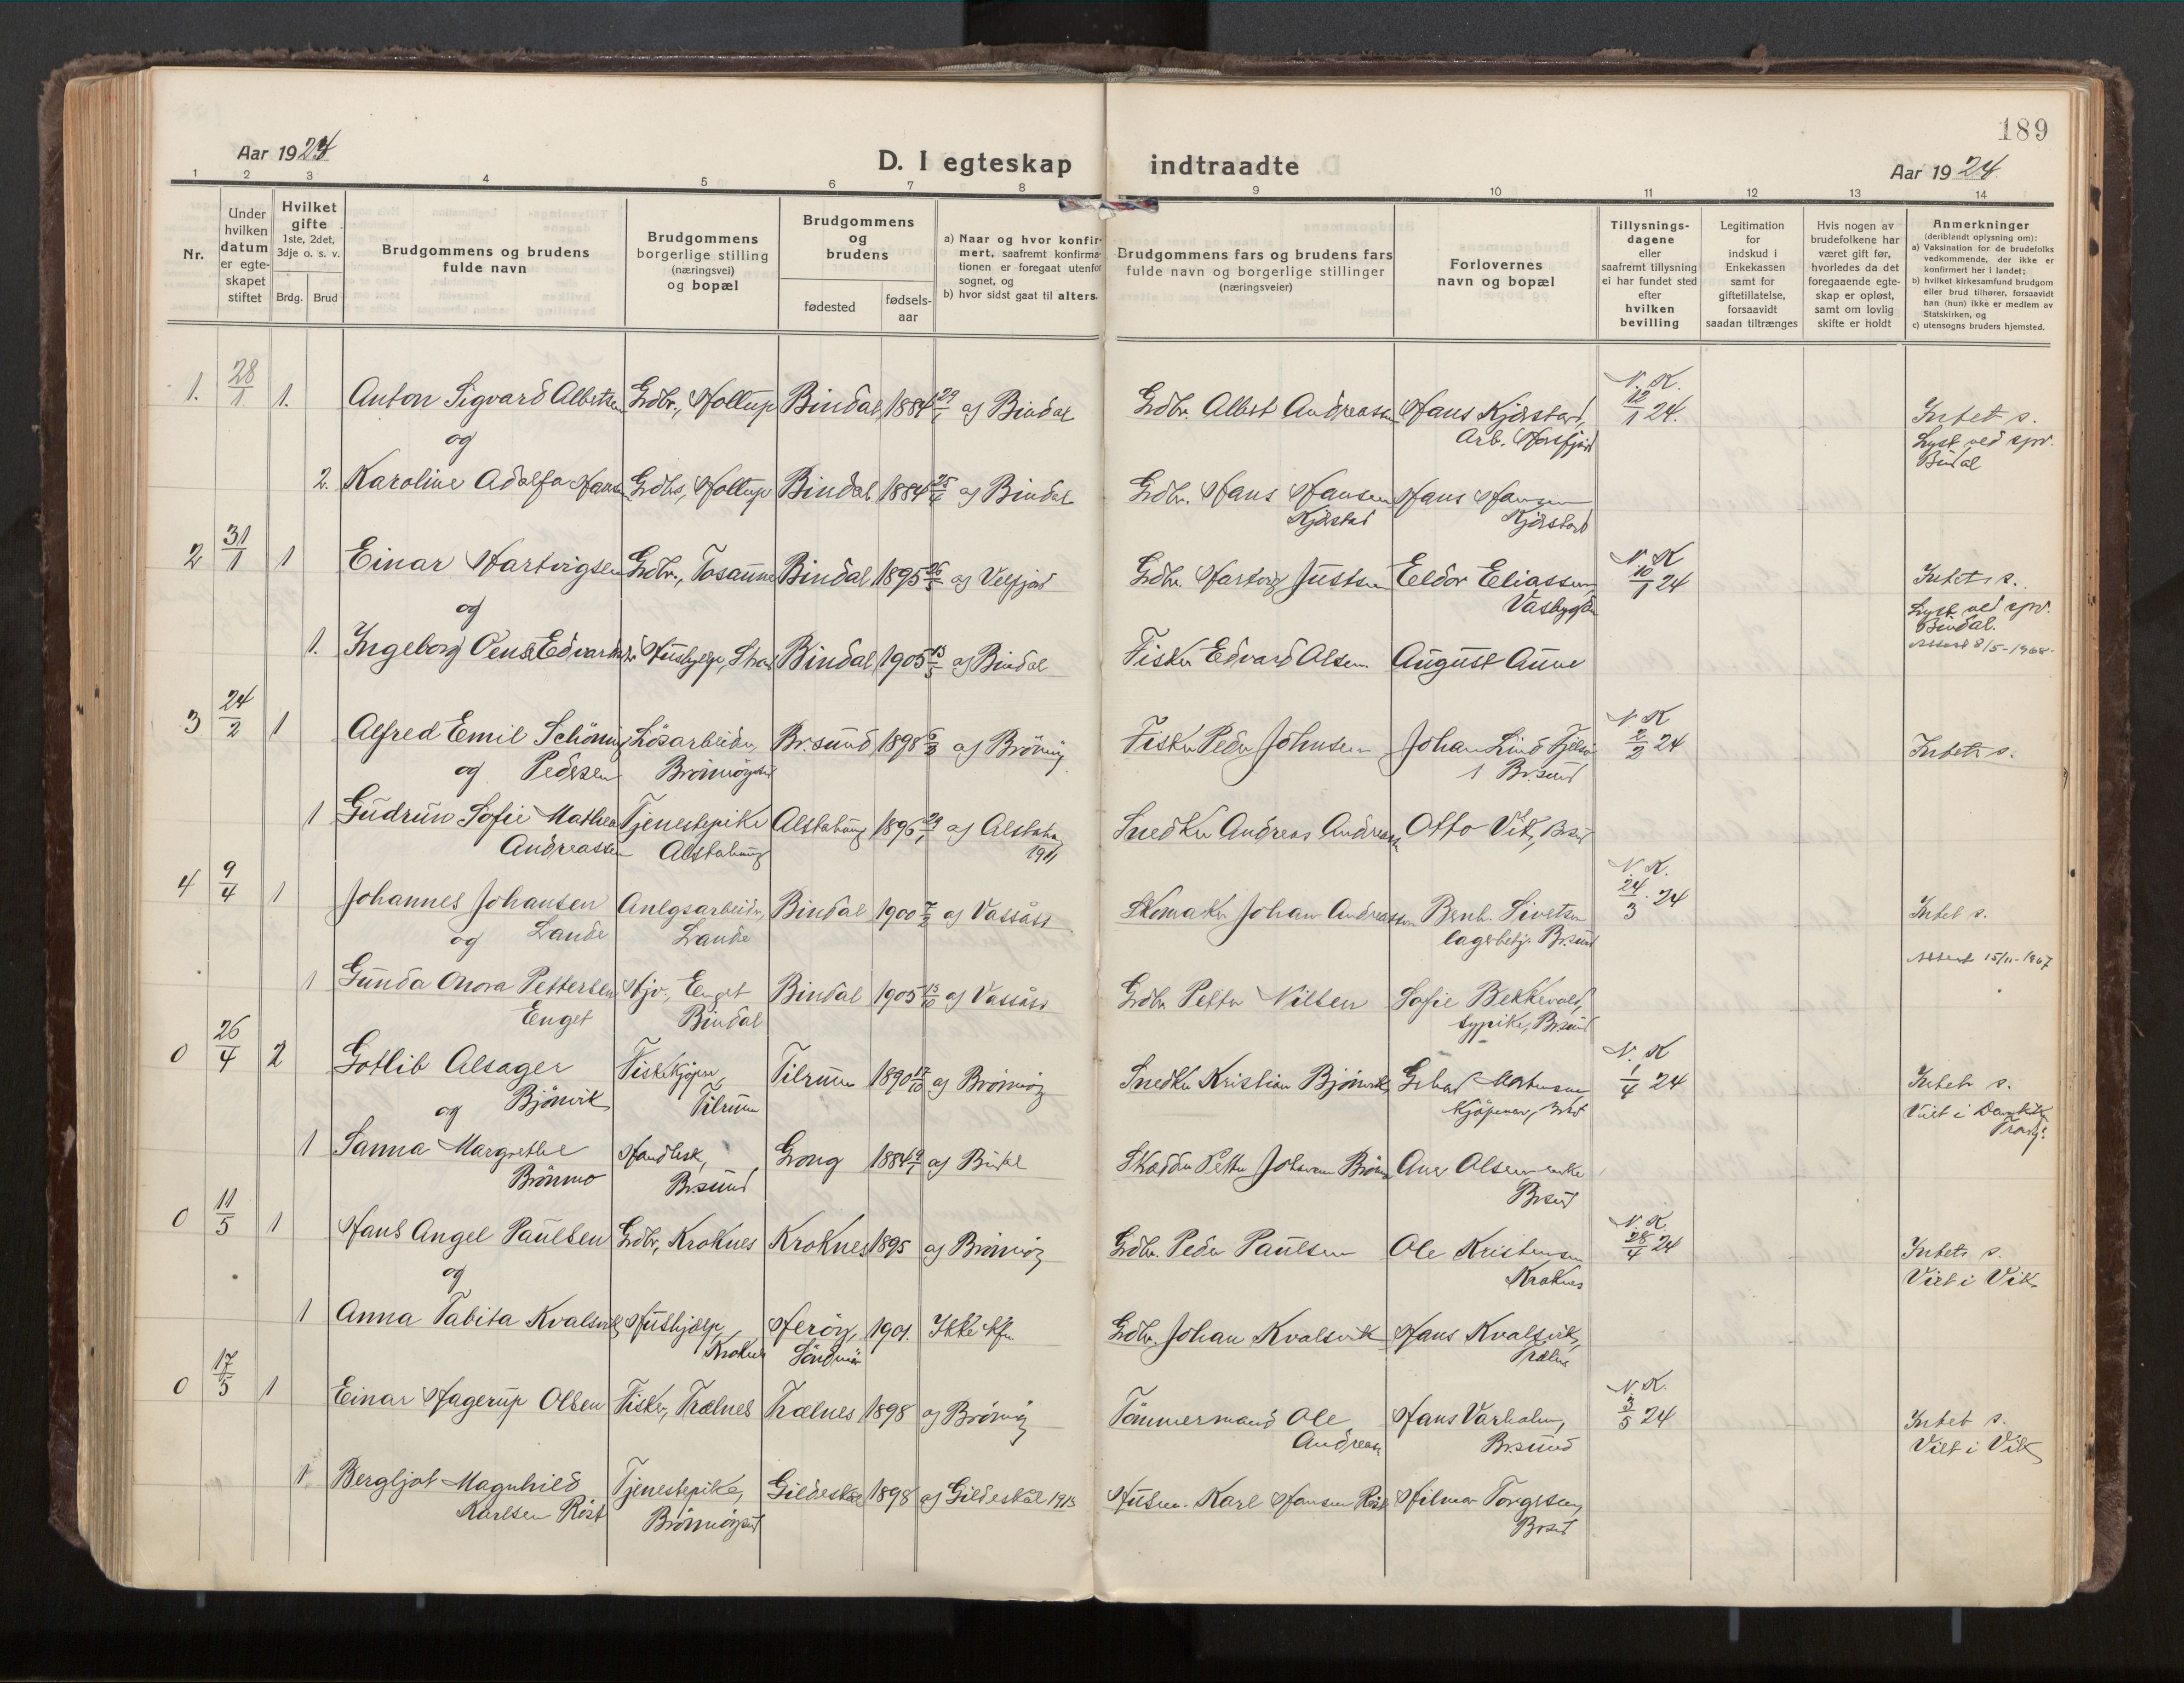 189
Aar 1924
D. I egteskap indtraadte
Aar 1924
1 2 3 4 5 6 7 8 9 10 11 12 13 14
Nr.
Under hvilken datum er egteskapet stiftet
Hvilket gifte 1ste, 2det, 3dje o. s. v.
Brdg. Brud
Brudgommens og brudens fulde navn
Brudgommens borgerlige stilling (næringsvei) og bopæl
Brudgommens og brudens
fødested
fødselsaar
a) Naar og hvor konfirmert, saafremt konfirmationen er foregaat utenfor sognet, og
b) hvor sidst gaat til alters.
Brudgommens fars og brudens fars fulde navn og borgerlige stillinger (næringsveier)
Forlovernes navn og bopæl
Tillysningsdagene eller saafremt tillysning ei har fundet sted efter hvilken bevilling
Legitimation for indskud i Enkekassen samt for giftetillatelse, forsaavidt saadan tiltrænges
Hvis nogen av brudefolkene har været gift før, hvorledes da det foregaaende egteskap er opløst, samt om lovlig skifte er holdt
Anmerkninger (deriblandt oplysning om):
a) Vaksination for de brudefolks vedkommende, der ikke er konfirmert her i landet;
b) hvilket kirkesamfund brudgom eller brud tilhører, forsaavidt han (hun) ikke er medlem av Statskirken, og
c) utensogns bruders hjemsted.
1. 28/1 1. Anton Sigvard Albertsen Gdbr., Hollup Bindal 1884 29/1 a) Bindal Gdbr. Albert Andreassen Hans Kjærstad, N. K. 12/1 24. Intet s.
og Arb. Horsfjord Lyst ved spr.
Bindal
2. Karoline Adolfa Hansen Gdbr, Hollup Bindal 1884 25/4 a) Bindal Gdbr. Hans Hansen Hans Hansen
Kjærstad Kjærstad
2 31/1 1 Einar Hartvigsen Gdbr., Tosaunet Bindal 1895 26/5 a) Velfjord Gdbr. Hartvig Justsen Eldor Eliassen, N. K 10/1 24 Intet s.
og Vasbygden Lyst ved spr.
Bindal.
1. Ingeborg Edvardsdtr Hushjelp, Bindal 1905 13/5 a) Bindal Fisker Edvard Olsen August Aune 8/5-1968
3 24/2 1 Alfred Emil Schöning Løsarbeider, Br.sund 1898 a) Brönnöy Fisker Peder Johnsen Johan Lind N. K 2/2 24 Intet s.
og Pedersen Brönnöysund Br.sund
1 Gudrun Sofie Mathea Tjenestepike Alstahaug 1896 a) Alstahaug Snedker Andreas Andreassen Otto Vik, Brsd
Andreassen Alstahaug 1911
4 9/4 1 Johannes Johansen Anlegsarbeider, Bindal 1900 7/2 a) Vassåss Skomaker Johan Andreassen Bernh. Sivertsen N. K. 24/3. 24 Intet s.
og Lande Lande lagerbetj. Br.sund
15/11-1967
1 Gunda Onora Pettersen Hjv., Enget Bindal 1905 13/10 a) Vassåss Gdbr Petter Nilsen Sofie Bekkevold,
Enget Bindal sypike, Br.sund
0 26/4 2 Gotlib Alsager Fiskekjøper, Tilrum 1890 17/10 a) Brönnöy Snedker Kristian Björnvik N. K 1/4 24 Intet s.
og Björnvik Tilrum Kjöpman, Brsd Viet i
1 Sanna Margrethe Handlesk, Grong 1884 a) Bindal Skrædder Petter Johansen Brönmo Ane Olsen enke
Brönmo Br.sund Brsund
0 11/5 1 Hans Angel Paulsen Gdbr, Kroknes Kroknes 1895 a) Brönnöy Gdbr. Peder Paulsen Ole Kristensen N. K. 28/4 24 Intet s.
og Kroknes Viet i Vik
1 Anna Tabita Kvalsvik Hushjælp, Herøy, 1901. Ikke kfm Gdbr. Johan Kvalsvik Hans Kvalsvik,
Kroknes Söndmör Trælnes
0 17/5 1 Einar Hagerup Olsen Fisker, Trælnes Trælnes 1898 a) Brönnöy Tömmermand Ole Hans Varholm, N. K. 3/5 24 Intet s.
Andreas Brsund Viet i Vik
1 Bergljot Magnhild Tjenestepike, Gildeskål 1898 a) Gildeskål 1913 Husm. Karl Hansen Röst Hilmar Torgersen,
Karlsen Röst Brönnöysund Brsd